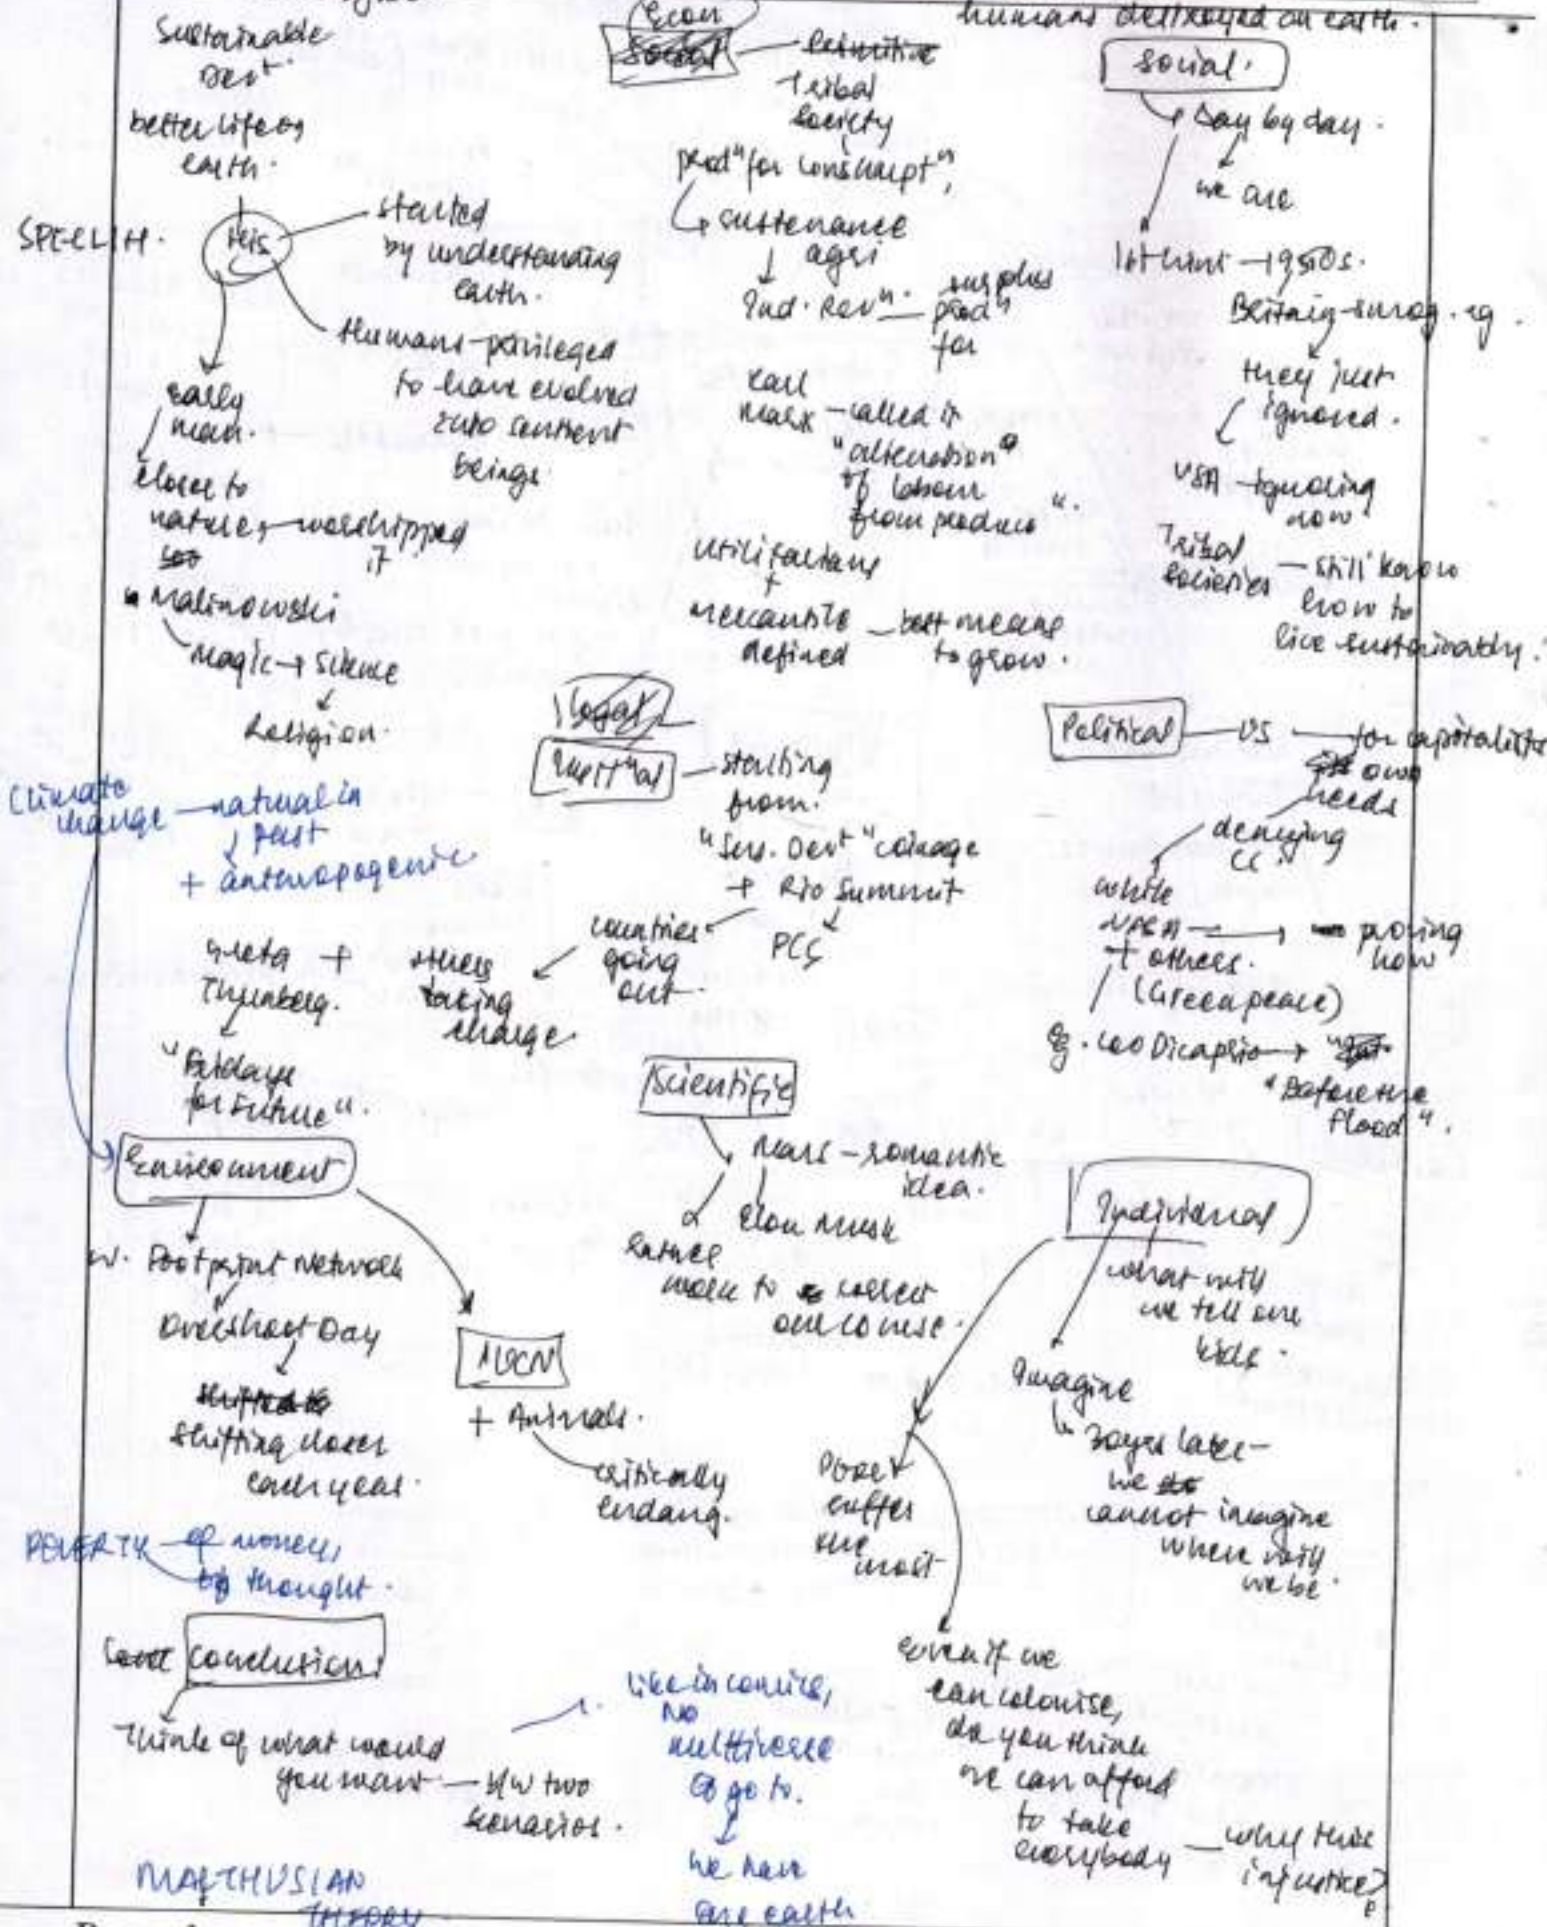 Sustainable
Devt.
better life on
earth.
SPEECH.
His
started
by understanding
earth.
Humans - privileged
to have evolved
into sentient
beings.
Early
man.
closer to
nature, - worshipped
it
Malinowski
Magic → Science
Religion.
Climate
change - natural in
past
+ anthropogenic
Greta + others
Thunberg. taking
charge.
"Fridays
for Future".
Environment
Footprint Network
Overshoot Day
Shifting closer
each year.
IUCN
+ Animals.
critically
endang.
POVERTY - of money,
of thought.
Conclusion
Think of what would
you want - b/w two
scenarios.
MALTHUSIAN
THEORY
Econ
Social
Primitive
Tribal
Society
prodn for consumptn,
sustenance
agri
Ind. Revn. - surplus
prodn
for
Karl
Marx - called it
"alienation
of labour
from produce".
Utilitarians
+
mercantile - best means
defined to grow.
Legal
starting
from.
"Sus. Devt" coinage
+ Rio Summit
countries
going
out.
Scientific
Mars - romantic
idea.
Elon Musk
work to correct
our course.
like in comics,
No
multiverse
to go to.
we have
one earth.
humans destroyed on earth.
Social.
Day by day.
we are
1st hint - 1950s.
they just
ignored.
USA - ignoring
now
Tribal
societies - still know
how to
live sustainably.
Political - US - for capitalists
own
needs
denying
CC.
while
NASA → proving
+ others. how
(Greenpeace)
Eg. Leo Dicaprio →
"Before the
Flood".
Individual
what will
we tell our
kids.
Imagine
30 yrs later -
we
cannot imagine
where will
we be.
Poor
suffer
the
most
Even if we
can colonise,
do you think
we can afford
to take
everybody - why this
injustice?